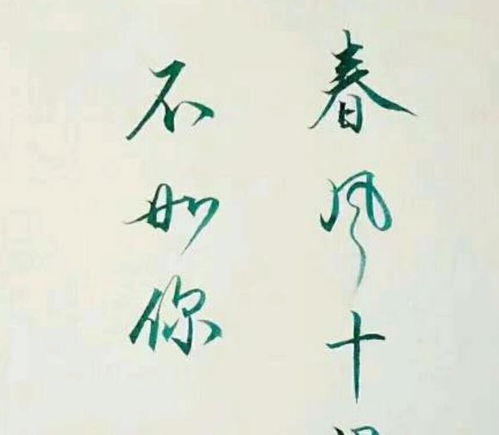 春风十
不如你